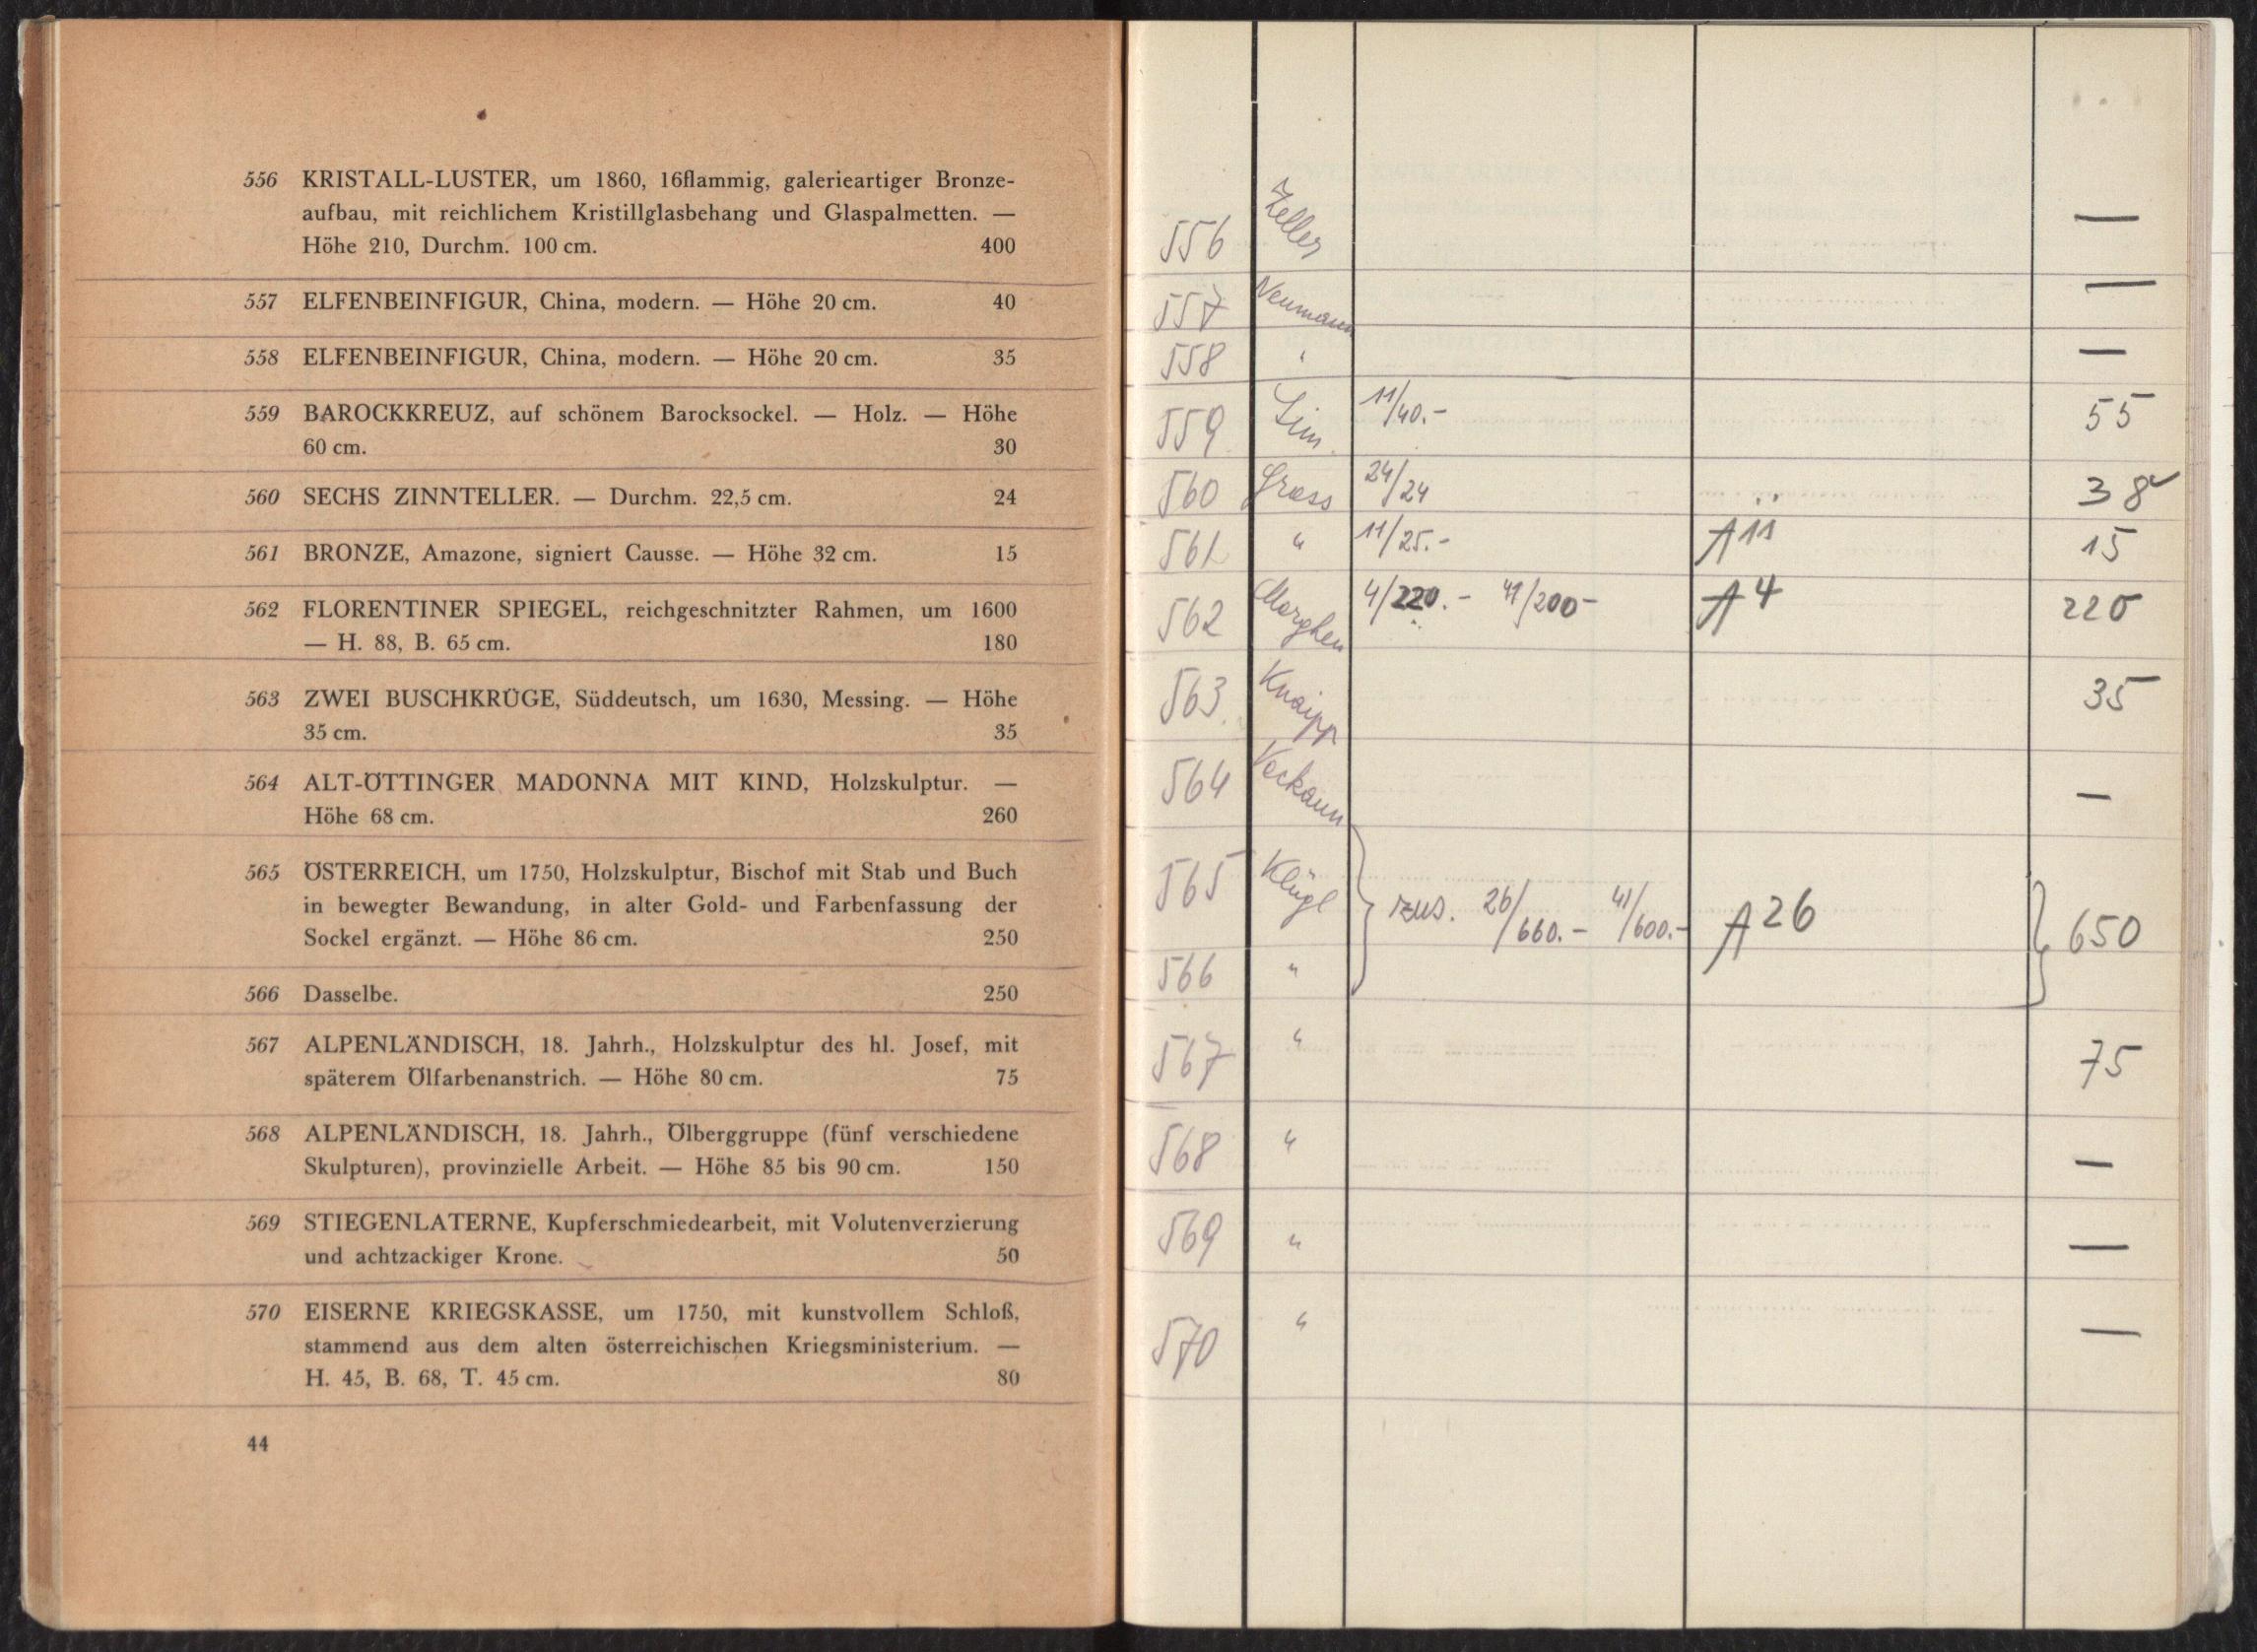 556 KRISTALL-LUSTER, um 1860, 16flammig, galerieartiger Bronze-
aufbau, mit reichlichem Kristillglasbehang und Glaspalmetten. —
Höhe 210, Durchm. 100 cm. 400
557 ELFENBEINFIGUR, China, modern. — Höhe 20 cm. 40
558 ELFENBEINFIGUR, China, modern. — Höhe 20 cm. 35
559 BAROCKKREUZ, auf schönem Barocksockel. — Holz. — Höhe
60 cm. 30
560 SECHS ZINNTELLER. — Durchm. 22,5 cm. 24
561 BRONZE, Amazone, signiert Causse. — Höhe 32 cm. 15
562 FLORENTINER SPIEGEL, reichgeschnitzter Rahmen, um 1600
— H. 88, B. 65 cm. 180
563 ZWEI BUSCHKRÜGE, Süddeutsch, um 1630, Messing. — Höhe
35 cm. 35
564 ALT-ÖTTINGER MADONNA MIT KIND, Holzskulptur. —
Höhe 68 cm. 260
565 ÖSTERREICH, um 1750, Holzskulptur, Bischof mit Stab und Buch
in bewegter Bewandung, in alter Gold- und Farbenfassung der
Sockel ergänzt. — Höhe 86 cm. 250
566 Dasselbe. 250
567 ALPENLÄNDISCH, 18. Jahrh., Holzskulptur des hl. Josef, mit
späterem Ölfarbenanstrich. — Höhe 80 cm. 75
568 ALPENLÄNDISCH, 18. Jahrh., Ölberggruppe (fünf verschiedene
Skulpturen), provinzielle Arbeit. — Höhe 85 bis 90 cm. 150
569 STIEGENLATERNE, Kupferschmiedearbeit, mit Volutenverzierung
und achtzackiger Krone. 50
570 EISERNE KRIEGSKASSE, um 1750, mit kunstvollem Schloß,
stammend aus dem alten österreichischen Kriegsministerium. —
H. 45, B. 68, T. 45 cm. 80
44
556 Zeller —
557 Neumann —
558 " —
559 11/40.- 55
560 24/24 38
561 " 11/25.- A 11 15
562 4/220.- 41/200- A 4 220
563 Knaipp 35
564 —
565 Klügl zus. 26/660.- 41/600.- A 26 650
566 "
567 " 75
568 " —
569 " —
570 " —